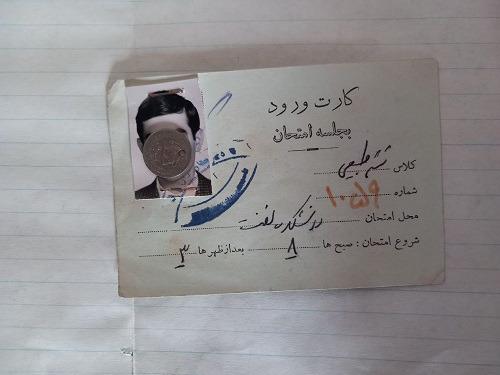 کارت ورود
بجلسه امتحان
کلاس ششم طبیعی
شماره ۱۰۵۹
محل امتحان دانشکده نفت
شروع امتحان : صبح ها ۸ بعدازظهرها ۳